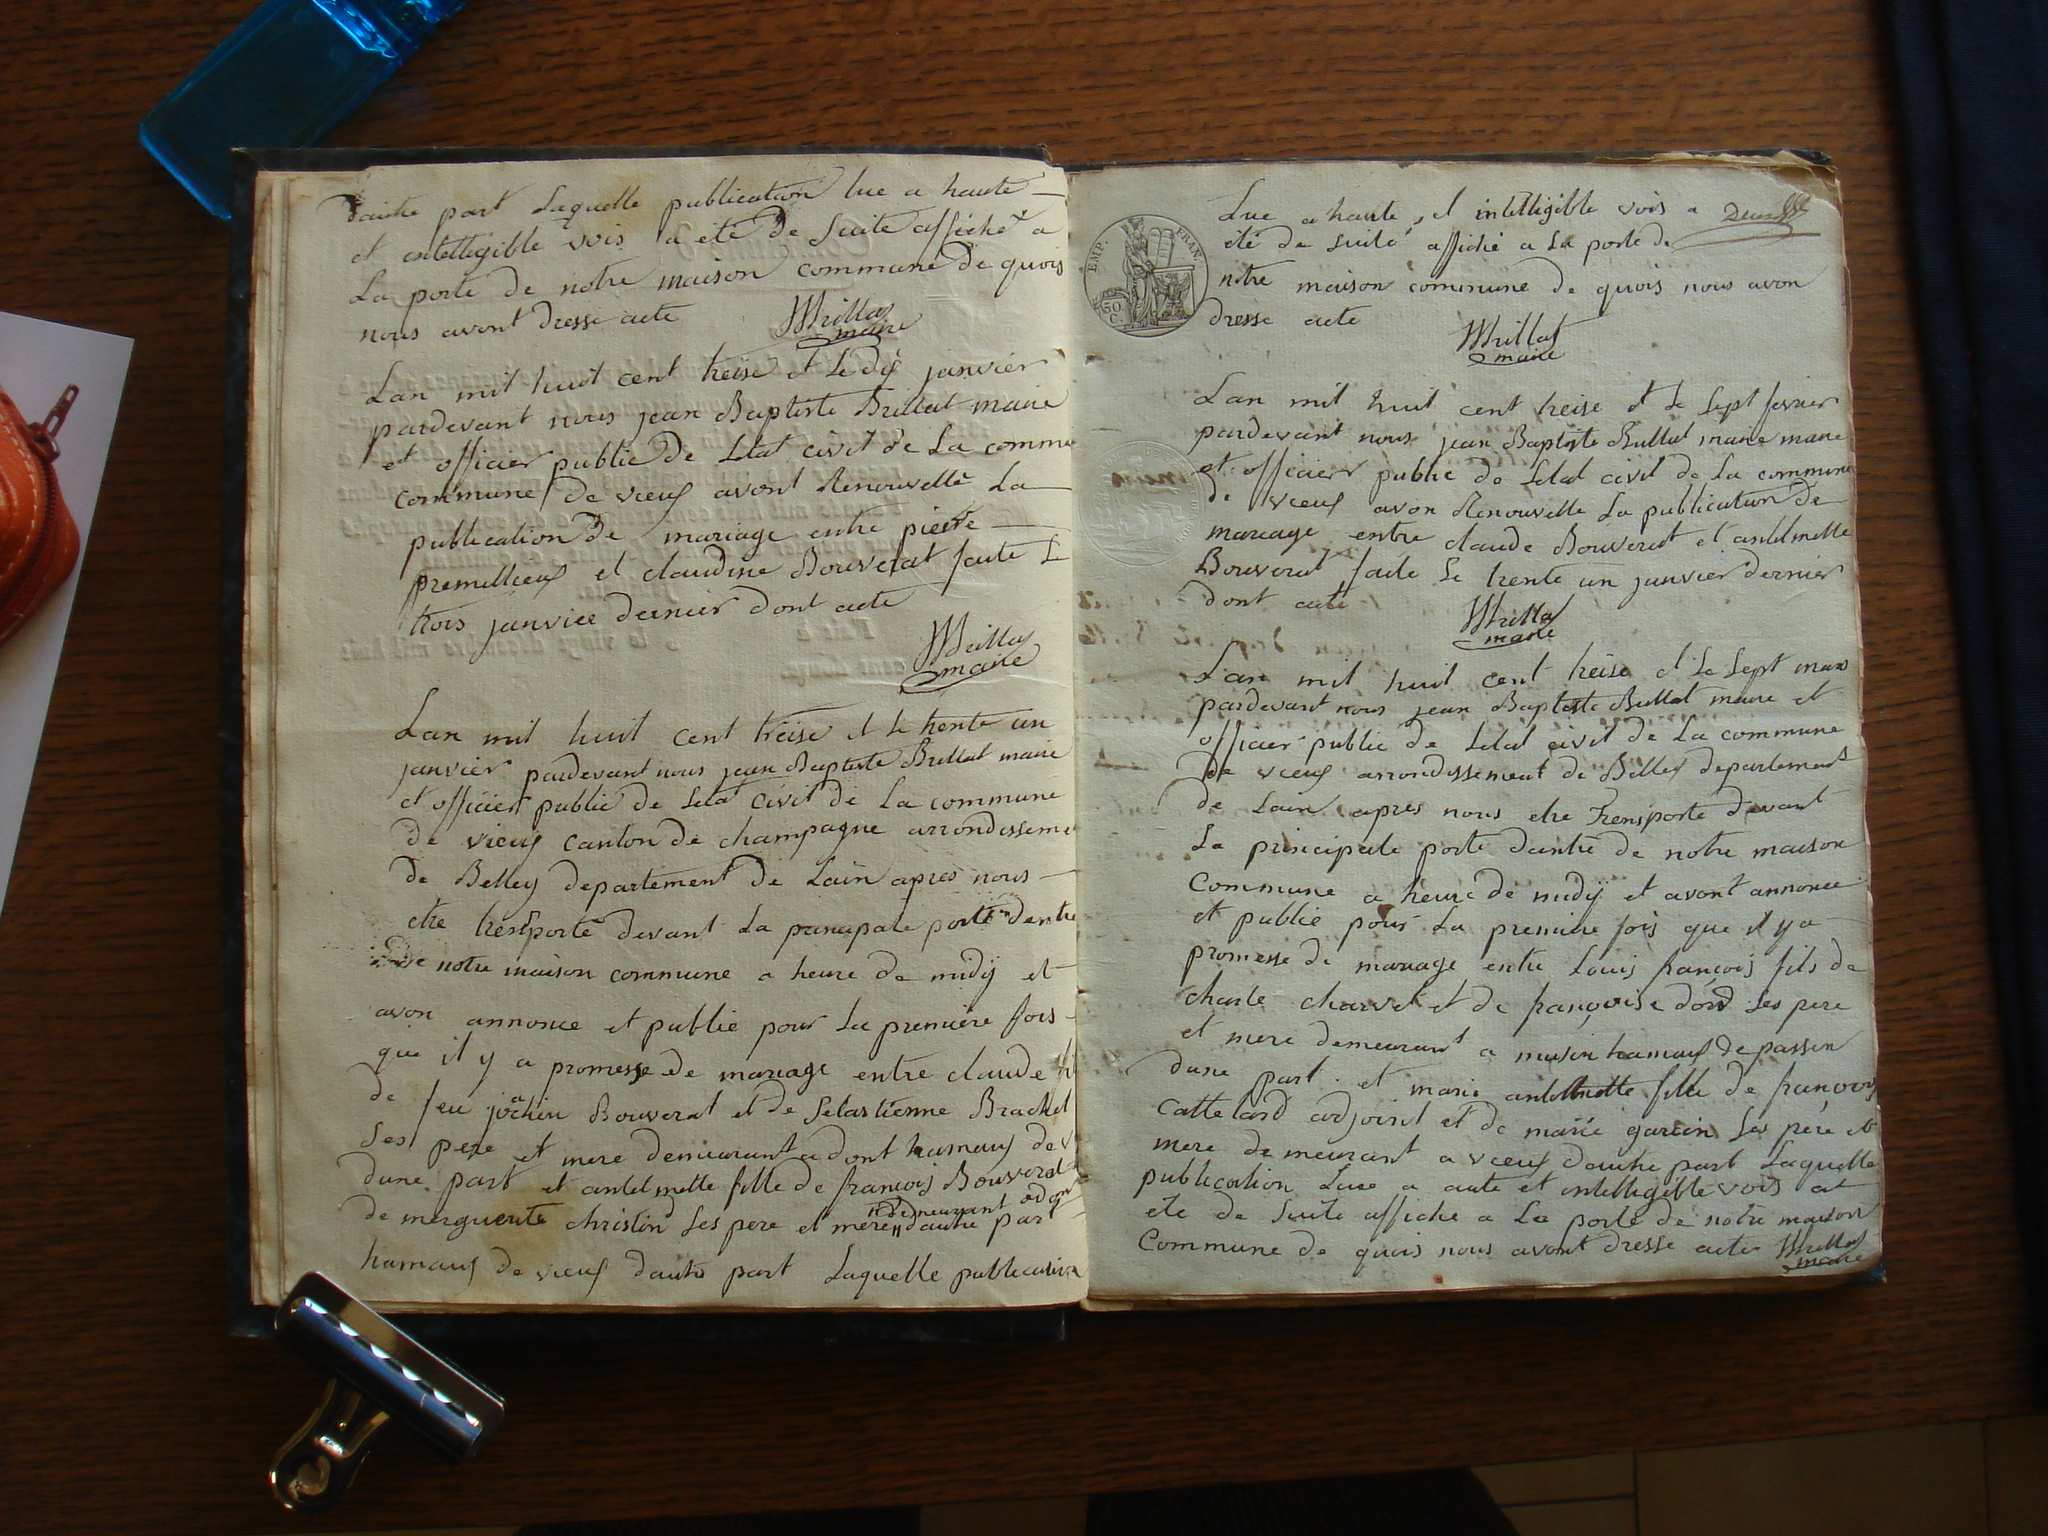 dautre part Laquelle publication lue a haute
et intelligible vois a été de suite affiché a
La porte de notre maison commune de quois
nous avont dresse acte
JBrillat
maire
Lan mil huit cent treise et Le dix janvier
pardevant nous jean Baptiste Brillat maire
et officier public de Letat civil de La commu
commune de vieux avont Renouvellé La
publication de mariage entre pierre
premillieux et claudine Bouverat faite Le
trois janvier dernier dont acte
JBrillat
maire
Lan mil huit cent treise et le trente un
janvier pardevant nous jean Baptiste Brillat maire
et officier public de Letat civil de La commune
de vieux canton de champagne arrondisseme
de Belley departement de Lain apres nous
etre transporté devant La principale porte dentre
de notre maison commune a heure de midÿ et
avon annonce et publié pour La premiere fois
que il y a promesse de mariage entre claude
de feu joachin Bouverat et de Sebastienne Brachet
Ses pere et mere demeurant a dont hamaux de v
dune part et antelmette fille de francois Bouverat
de merguerite christin Ses pere et mere demeurant a don dautre part
hamaux de vieux dautre part Laquelle publication
EMP. FRAN.
50 C.
Lue a haute et intelligible vois a
été de suite affiché a La porte de
notre maison commune de quois nous avon
dresse acte
JBrillat
maire
Lan mil huit cent treise et Le Sept fevrier
pardevant nous jean Baptiste Brillat maire maire
et officier public de Letat civil de La commune
de vieux avon Renouvelle La publication de
mariage entre claude Bouverat et antelmette
Bouverat faite Le trente un janvier dernier
dont acte
JBrillat
maire
Lan mil huit cent treise et Le Sept mars
pardevant nous jean Baptiste Brillat maire et
officier public de Letat civil de La commune
de vieux arrondissement de Belley departement
de Lain apres nous etre Trensporte devant
La principale porte dantré de notre maison
Commune a heure de midÿ et avont annoncé
et publié pour La premiere fois que il y a
promesse de mariage entre Louis françois fils de
charle charvet et de françoise dord Ses pere
et mere demeurant a muson hamaux de passin
dune part et marie antelmette fille de françois
Cattelard adjoint et de marie garcin Ses pere et
mere demeurant a vieux dautre part Laquelle
publication Lue a aute et intelligible vois at
eté de suite affiche a La porte de notre maison
Commune de quois nous avont dresse acte JBrillat
maire